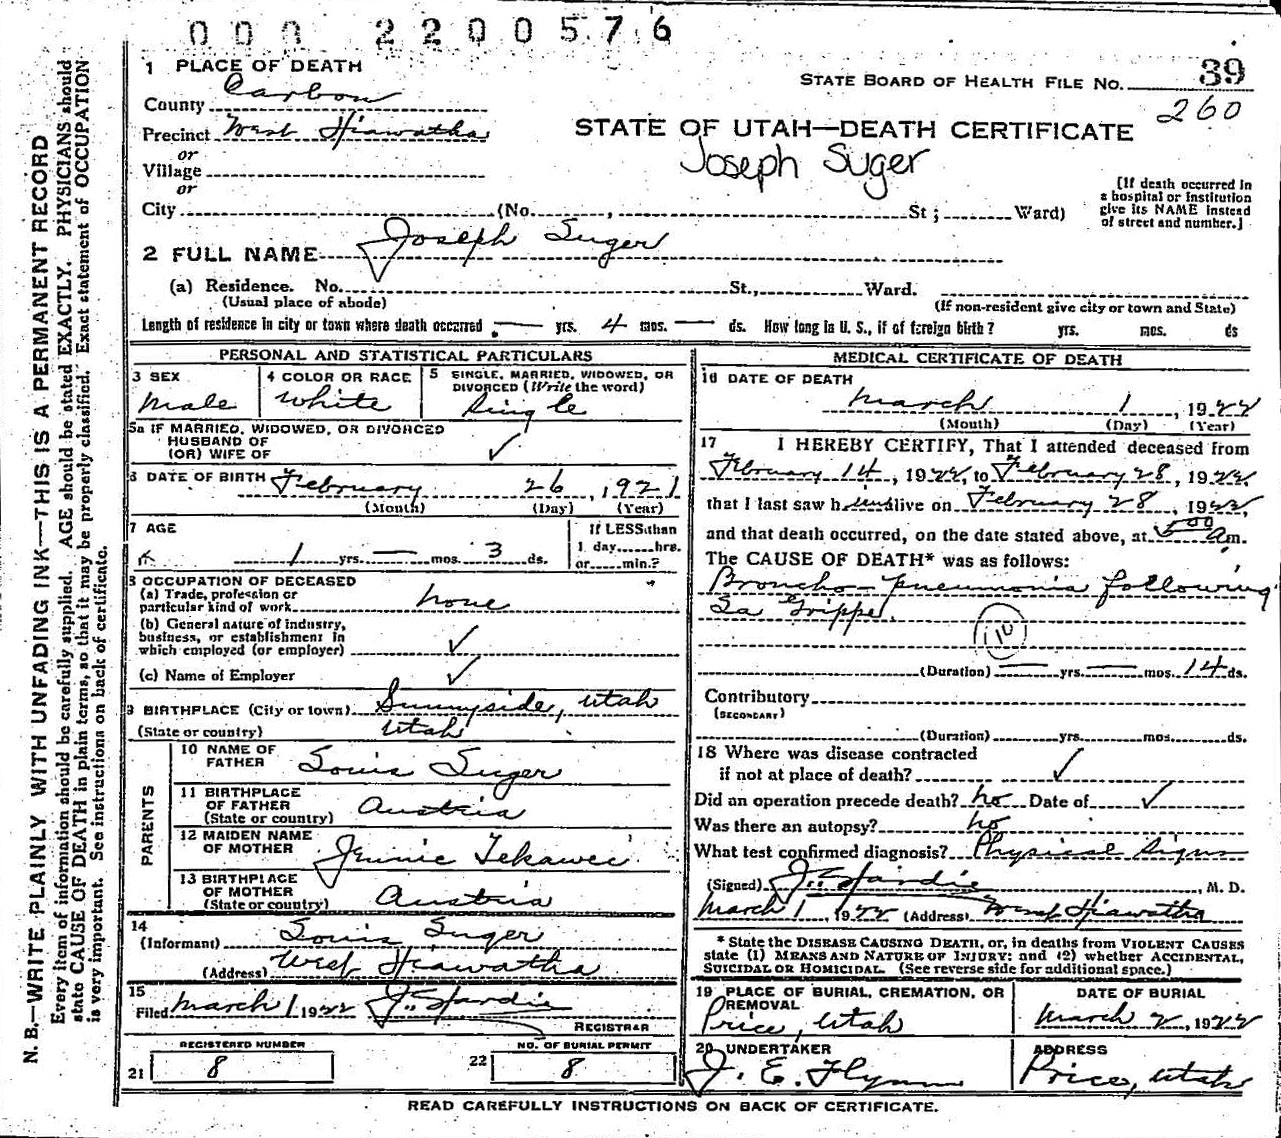 000 2200576
1 PLACE OF DEATH
STATE BOARD OF HEALTH FILE NO. 39
260
County Carbon
Precinct West Hiawatha
or
Village
or
City (No. , St ; Ward)
STATE OF UTAH—DEATH CERTIFICATE
Joseph Suger
[If death occurred in
a hospital or institution
give its NAME instead
of street and number.]
2 FULL NAME Joseph Suger
(a) Residence. No. St., Ward.
(Usual place of abode)
(If non-resident give city or town and State)
Length of residence in city or town where death occurred — yrs. 4 mos. — ds. How long in U. S., if of foreign birth? yrs. mos. ds
PERSONAL AND STATISTICAL PARTICULARS
3 SEX
Male
4 COLOR OR RACE
White
5 SINGLE, MARRIED, WIDOWED, OR
DIVORCED (Write the word)
Single
5a IF MARRIED, WIDOWED, OR DIVORCED
HUSBAND OF
(OR) WIFE OF ✓
6 DATE OF BIRTH February 26, 1921
(Month) (Day) (Year)
7 AGE
1 yrs. — mos. 3 ds.
If LESS than
1 day......hrs.
or......min.?
8 OCCUPATION OF DECEASED
(a) Trade, profession or
particular kind of work none
(b) General nature of industry,
business, or establishment in
which employed (or employer) ✓
(c) Name of Employer ✓
9 BIRTHPLACE (City or town) Sunnyside, Utah
(State or country) Utah
PARENTS
10 NAME OF
FATHER Louis Suger
11 BIRTHPLACE
OF FATHER
(State or country) Austria
12 MAIDEN NAME
OF MOTHER Jennie Tekavec
13 BIRTHPLACE
OF MOTHER
(State or country) Austria
14
(Informant) Louis Suger
(Address) West Hiawatha
15
Filed March 1 1922 J. Hardie
REGISTRAR
REGISTERED NUMBER
21 8
NO. OF BURIAL PERMIT
22 8
MEDICAL CERTIFICATE OF DEATH
16 DATE OF DEATH
March 1, 1922
(Month) (Day) (Year)
17 I HEREBY CERTIFY, That I attended deceased from
February 14, 1922, to February 28, 1922
that I last saw him alive on February 28, 1922,
and that death occurred, on the date stated above, at 5 00 a m.
The CAUSE OF DEATH* was as follows:
Broncho-pneumonia following
La Grippe.
(10)
(Duration) — yrs. — mos. 14 ds.
Contributory
(SECONDARY)
(Duration) yrs. mos. ds.
18 Where was disease contracted
if not at place of death? ✓
Did an operation precede death? no Date of ✓
Was there an autopsy? no
What test confirmed diagnosis? Physical Signs
(Signed) J. Hardie, M. D.
March 1, 1922 (Address) West Hiawatha
* State the DISEASE CAUSING DEATH, or, in deaths from VIOLENT CAUSES
state (1) MEANS AND NATURE OF INJURY: and (2) whether ACCIDENTAL,
SUICIDAL OR HOMICIDAL. (See reverse side for additional space.)
19 PLACE OF BURIAL, CREMATION, OR
REMOVAL
Price, Utah
DATE OF BURIAL
March 2, 1922
20 UNDERTAKER
J. E. Flynn
ADDRESS
Price, Utah
READ CAREFULLY INSTRUCTIONS ON BACK OF CERTIFICATE.
N. B.—WRITE PLAINLY WITH UNFADING INK—THIS IS A PERMANENT RECORD
Every item of information should be carefully supplied. AGE should be stated EXACTLY. PHYSICIANS should
state CAUSE OF DEATH in plain terms, so that it may be properly classified. Exact statement of OCCUPATION
is very important. See instructions on back of certificate.